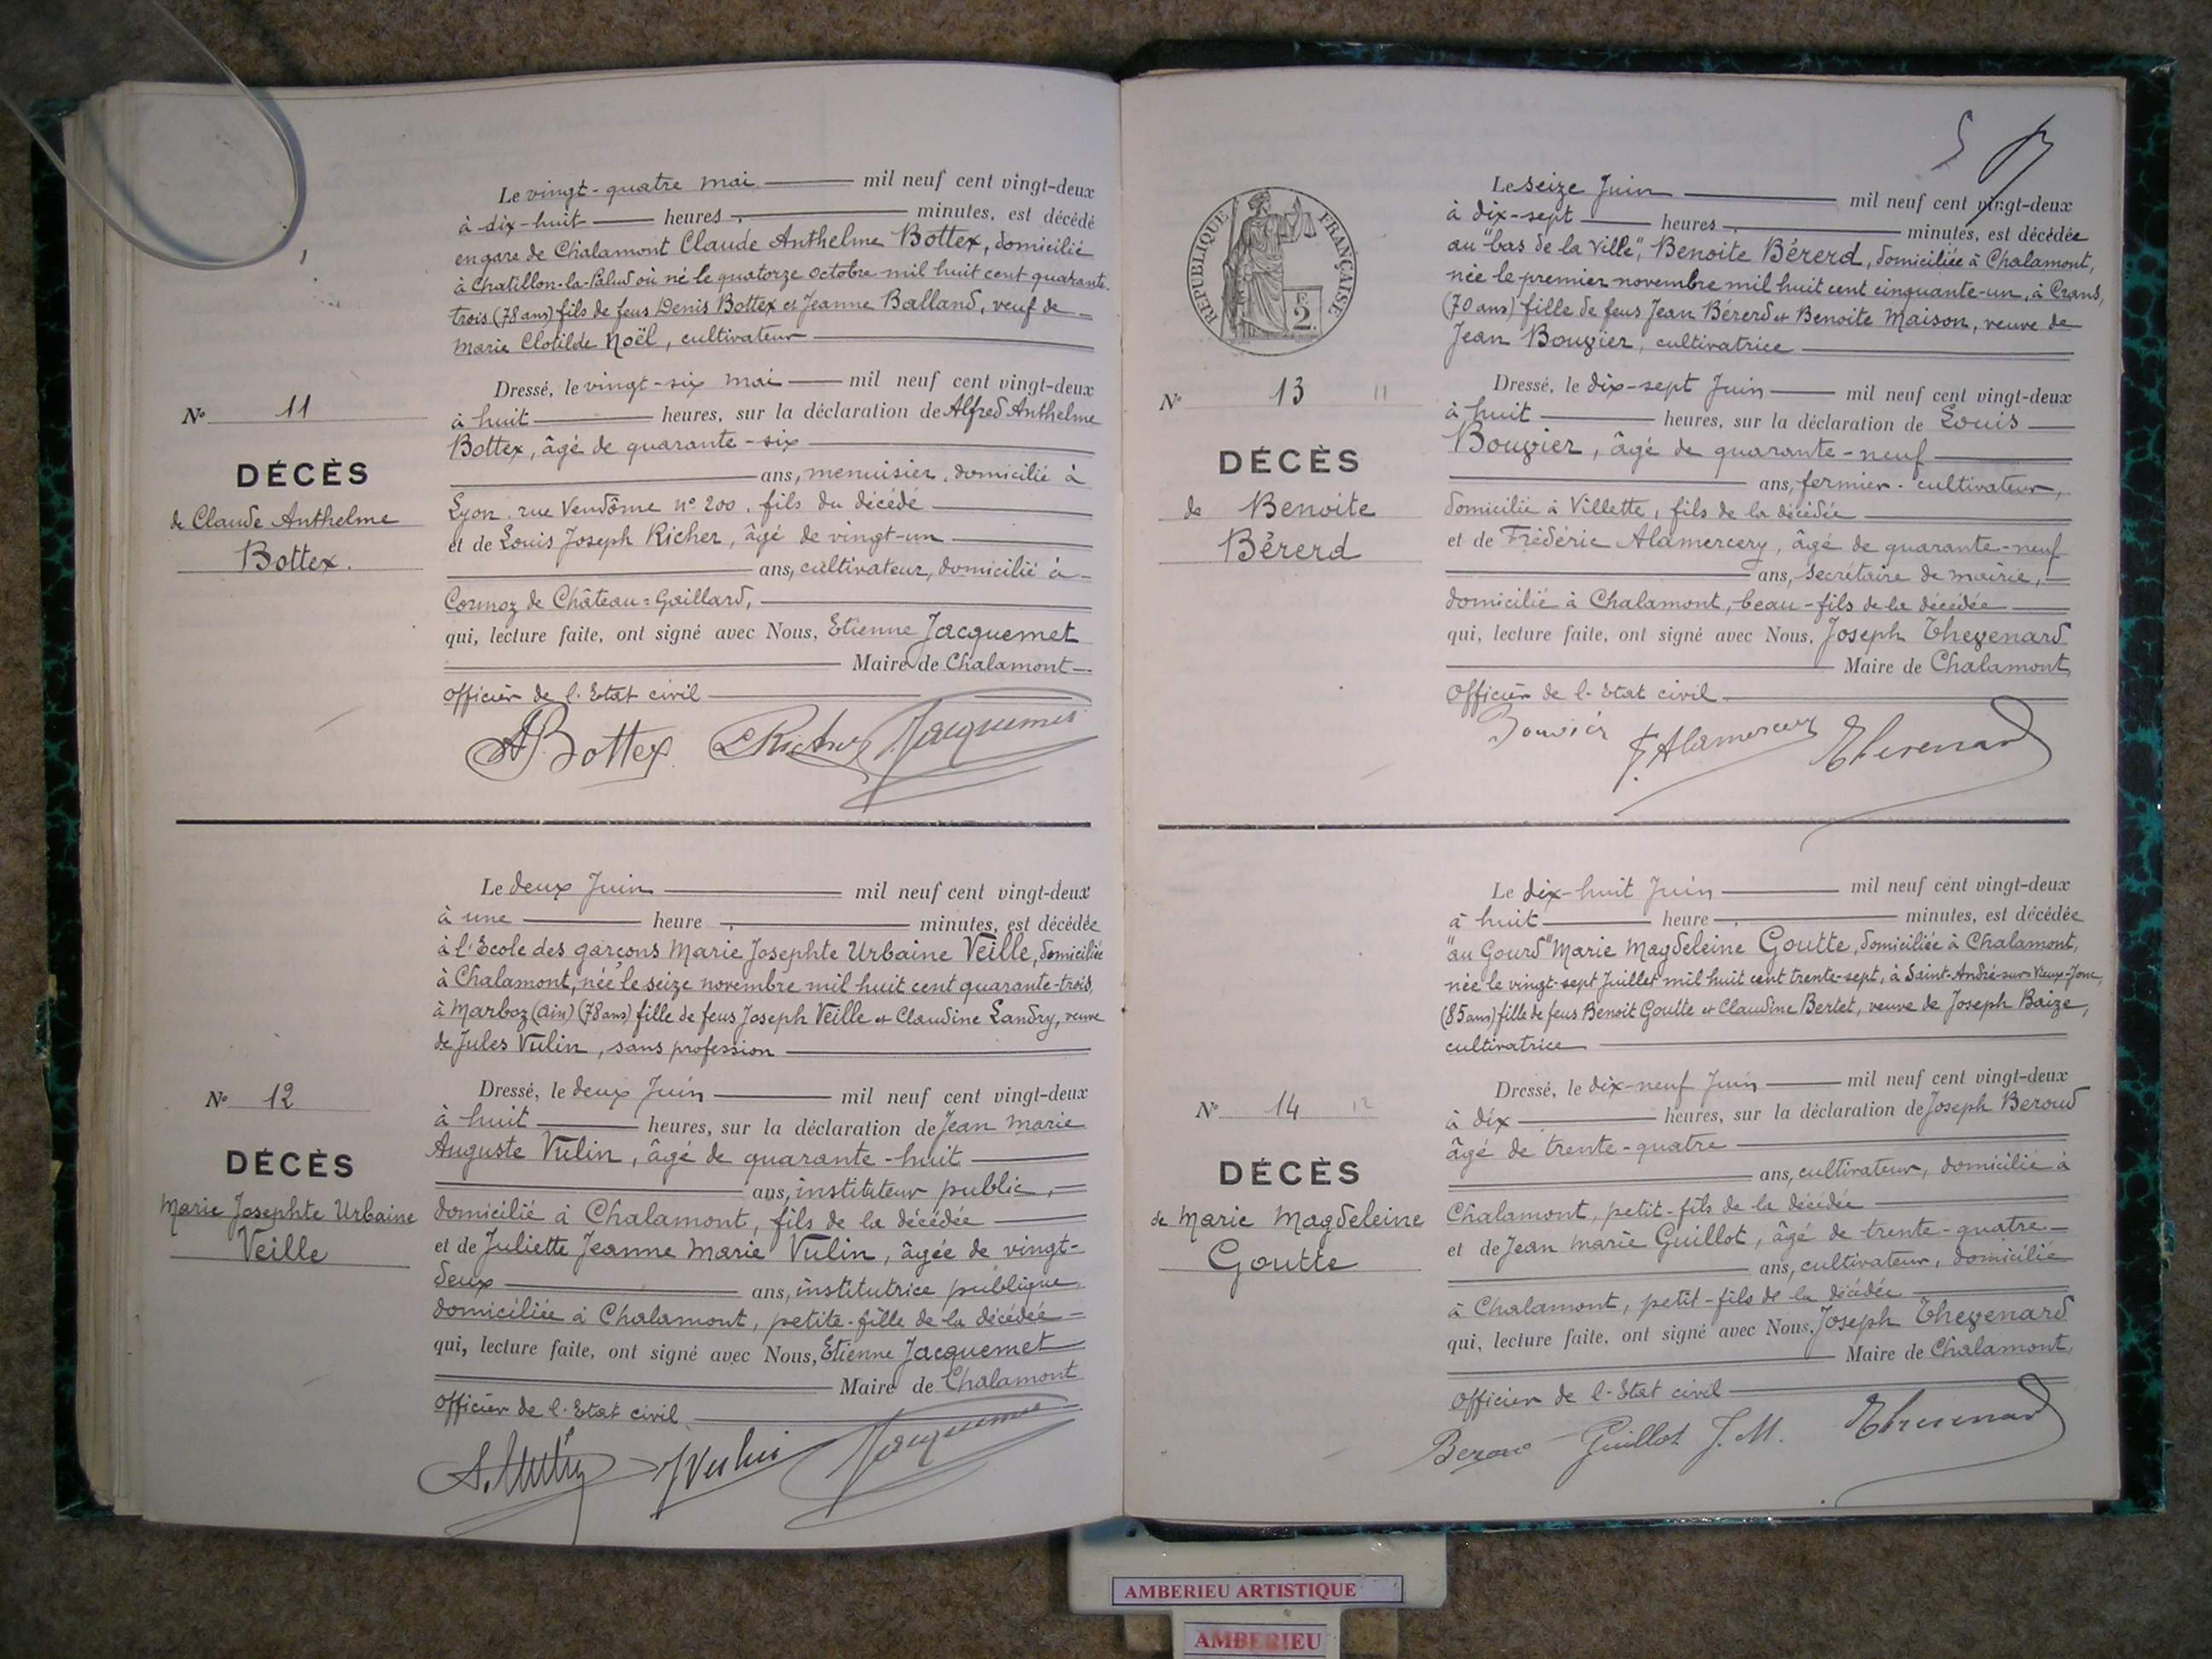 Le vingt-quatre mai mil neuf cent vingt-deux
à dix-huit heures, minutes, est décédé
en gare de Chalamont Claude Anthelme Bottex, domicilié
à Chatillon-la-Palud où né le quatorze octobre mil huit cent quarante-
trois (78 ans) fils de feus Denis Bottex et Jeanne Balland, veuf de
Marie Clotilde Noël, cultivateur
Dressé, le vingt-six mai mil neuf cent vingt-deux
à huit heures, sur la déclaration de Alfred Anthelme
Bottex, âgé de quarante-six
ans, menuisier, domicilié à
Lyon, rue Vendôme n° 200, fils du décédé
et de Louis Joseph Richer, âgé de vingt-un
ans, cultivateur, domicilié à
Cormoz de Château-Gaillard,
qui, lecture faite, ont signé avec Nous, Etienne Jacquemet
Maire de Chalamont
officier de l'Etat civil
N° 11
DÉCÈS
de Claude Anthelme
Bottex.
A Bottex L Richer Jacquemet
Le deux Juin mil neuf cent vingt-deux
à une heure, minutes, est décédée
à l'Ecole des garçons Marie Josephte Urbaine Veille, domiciliée
à Chalamont, née le seize novembre mil huit cent quarante-trois,
à Marboz (Ain) (78 ans) fille de feus Joseph Veille et Claudine Landry, veuve
de Jules Vulin, sans profession
Dressé, le deux Juin mil neuf cent vingt-deux
à huit heures, sur la déclaration de Jean Marie
Auguste Vulin, âgé de quarante-huit
ans, instituteur public,
domicilié à Chalamont, fils de la décédée
et de Juliette Jeanne Marie Vulin, âgée de vingt-
deux ans, institutrice publique
domiciliée à Chalamont, petite-fille de la décédée
qui, lecture faite, ont signé avec Nous, Etienne Jacquemet
Maire de Chalamont
officier de l'Etat civil
N° 12
DÉCÈS
Marie Josephte Urbaine
Veille
JVulin Jacquemet
RÉPUBLIQUE FRANÇAISE
2 F
Le seize Juin mil neuf cent vingt-deux
à dix-sept heures, minutes, est décédée
au "bas de la ville", Benoite Bérerd, domiciliée à Chalamont,
née le premier novembre mil huit cent cinquante-un, à Crans,
(70 ans) fille de feus Jean Bérerd et Benoite Maison, veuve de
Jean Bouvier, cultivatrice
Dressé, le dix-sept Juin mil neuf cent vingt-deux
à huit heures, sur la déclaration de Louis
Bouvier, âgé de quarante-neuf
ans, fermier-cultivateur,
domicilié à Villette, fils de la décédée
et de Frédéric Alamercery, âgé de quarante-neuf
ans, secrétaire de mairie,
domicilié à Chalamont, beau-fils de la décédée
qui, lecture faite, ont signé avec Nous, Joseph Thevenard
Maire de Chalamont
officier de l'Etat civil
N° 13 11
DÉCÈS
de Benoite
Bérerd
Bouvier F. Alamercery Thevenard
Le dix-huit Juin mil neuf cent vingt-deux
à huit heure, minutes, est décédée
"au Gourd" Marie Magdeleine Goutte, domiciliée à Chalamont,
née le vingt-sept Juillet mil huit cent trente-sept, à Saint-André-sur-Vieux-Jonc,
(85 ans) fille de feus Benoit Goutte et Claudine Bertet, veuve de Joseph Baize,
cultivatrice
Dressé, le dix-neuf Juin mil neuf cent vingt-deux
à dix heures, sur la déclaration de Joseph Beroud
âgé de trente-quatre
ans, cultivateur, domicilié à
Chalamont, petit-fils de la décédée
et de Jean Marie Guillot, âgé de trente-quatre
ans, cultivateur, domicilié
à Chalamont, petit-fils de la décédée
qui, lecture faite, ont signé avec Nous, Joseph Thevenard
Maire de Chalamont,
officier de l'Etat civil
N° 14 12
DÉCÈS
de Marie Magdeleine
Goutte
Beroud Guillot J. M. Thevenard
AMBERIEU ARTISTIQUE
AMBERIEU